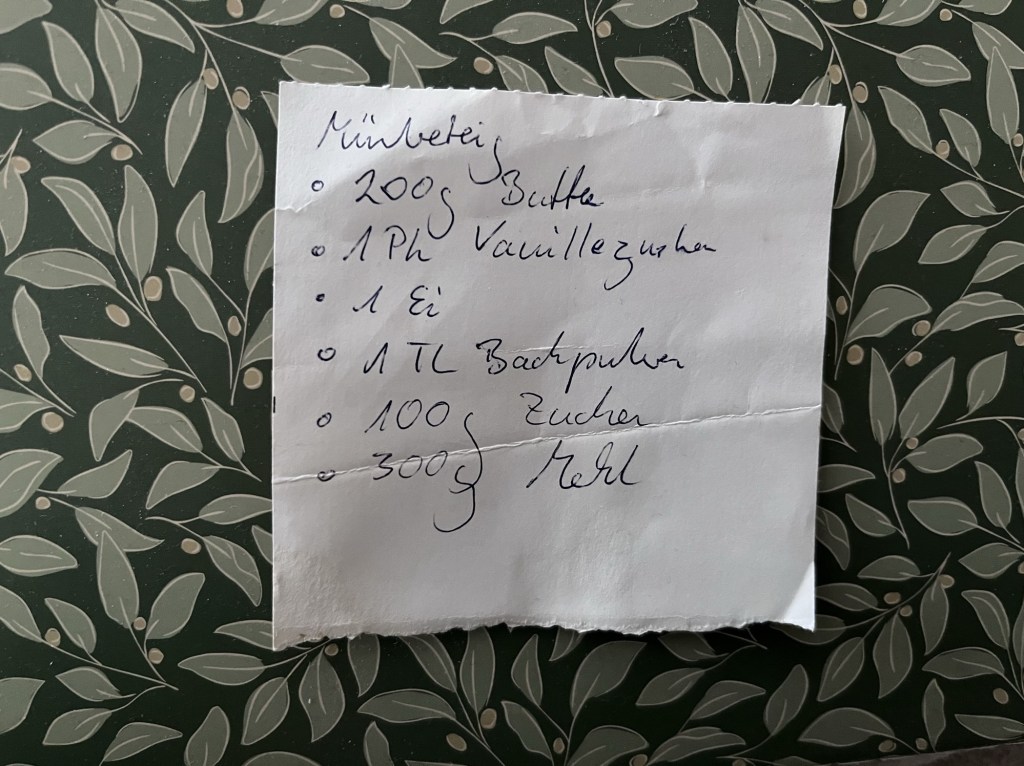 Mürbeteig
200g Butter
1 Pk Vanillezucker
1 Ei
1 TL Backpulver
100g Zucker
300g Mehl